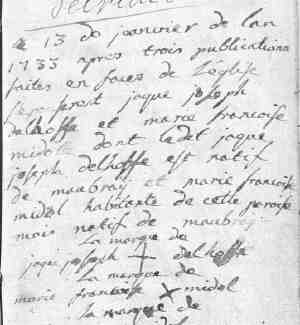 Le 13 de janvier de lan
1733 apres trois publications
faites en faces de Leglise
Jepouserent jaque joseph
delhoffe et marie francoise
midole dont ledit jaque
joseph delhoffe est natif
de maubray et marie francoise
midol habitante de cette paroise
mais natif de maubray
La marque de
jaque joseph + delhoffe
La marque de
marie francoise x midol
La marque de